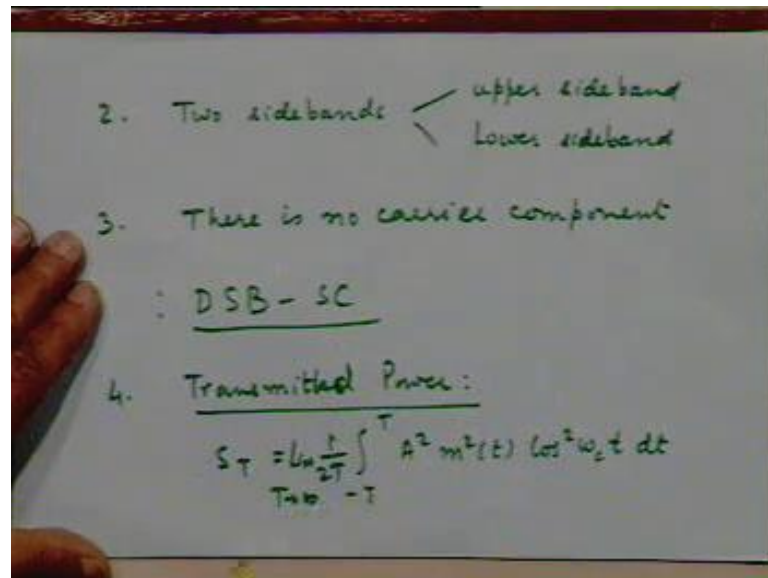 2. Two sidebands upper sideband
Lower sideband
3. There is no carrier component
: DSB - SC
4. Transmitted Power:
S_T = Lim 1/2T ∫ T A² m²(t) Cos² ω_c t dt
T→∞ -T